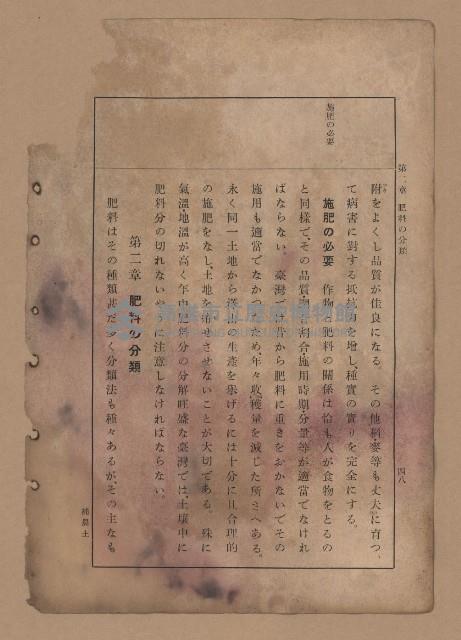 第二章 肥料の分類
四八
施肥の必要
附をよくし品質が佳良になる。その他稈麥等も丈夫に育つ、
て病害に對する抵抗力を增し、種實の實りを完全にする。
施肥の必要 作物と肥料の關係は恰も人が食物をとるの
と同樣で、その品質 割合、施用時期、分量等が適當でなけれ
ばならない。臺灣では昔から肥料に重きをおかないでその
施用も適當でなかつたため、年々收穫量を減じた所さへある。
永く同一土地から 生產を擧げるには十分に且合理的
の施肥をなし、土地を瘠せさせないことが大切である。殊に
氣溫、地溫が高く年中肥料分の分解旺盛な臺灣では、土壤中に
肥料分の切れないやうに注意しなければならない。
第二章 肥料の分類
肥料はその種類甚だ多く分類法も種々あるが、その主なも
補農土
高雄市立歷史博物館